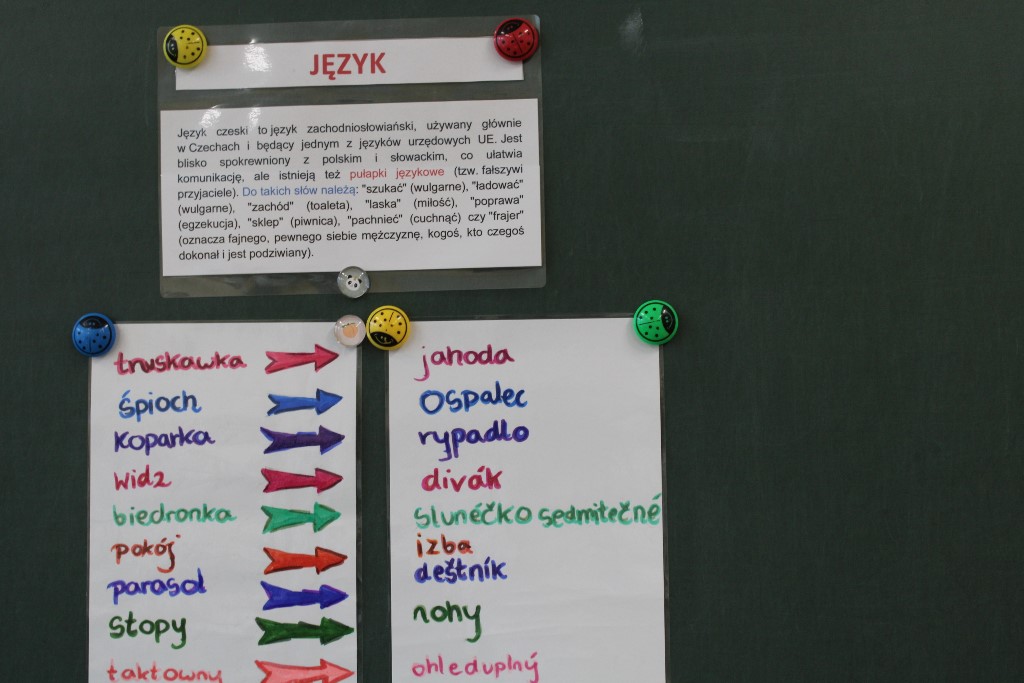 JĘZYK
Język czeski to język zachodniosłowiański, używany głównie
w Czechach i będący jednym z języków urzędowych UE. Jest
blisko spokrewniony z polskim i słowackim, co ułatwia
komunikację, ale istnieją też pułapki językowe (tzw. fałszywi
przyjaciele). Do takich słów należą: "szukać" (wulgarne), "ładować"
(wulgarne), "zachód" (toaleta), "laska" (miłość), "poprawa"
(egzekucja), "sklep" (piwnica), "pachnieć" (cuchnąć) czy "frajer"
(oznacza fajnego, pewnego siebie mężczyznę, kogoś, kto czegoś
dokonał i jest podziwiany).
truskawka
śpioch
koparka
widz
biedronka
pokój
parasol
stopy
taktowny
jahoda
ospalec
rypadlo
divák
slunéčko sedmitečné
izba
deštník
nohy
ohleduplný